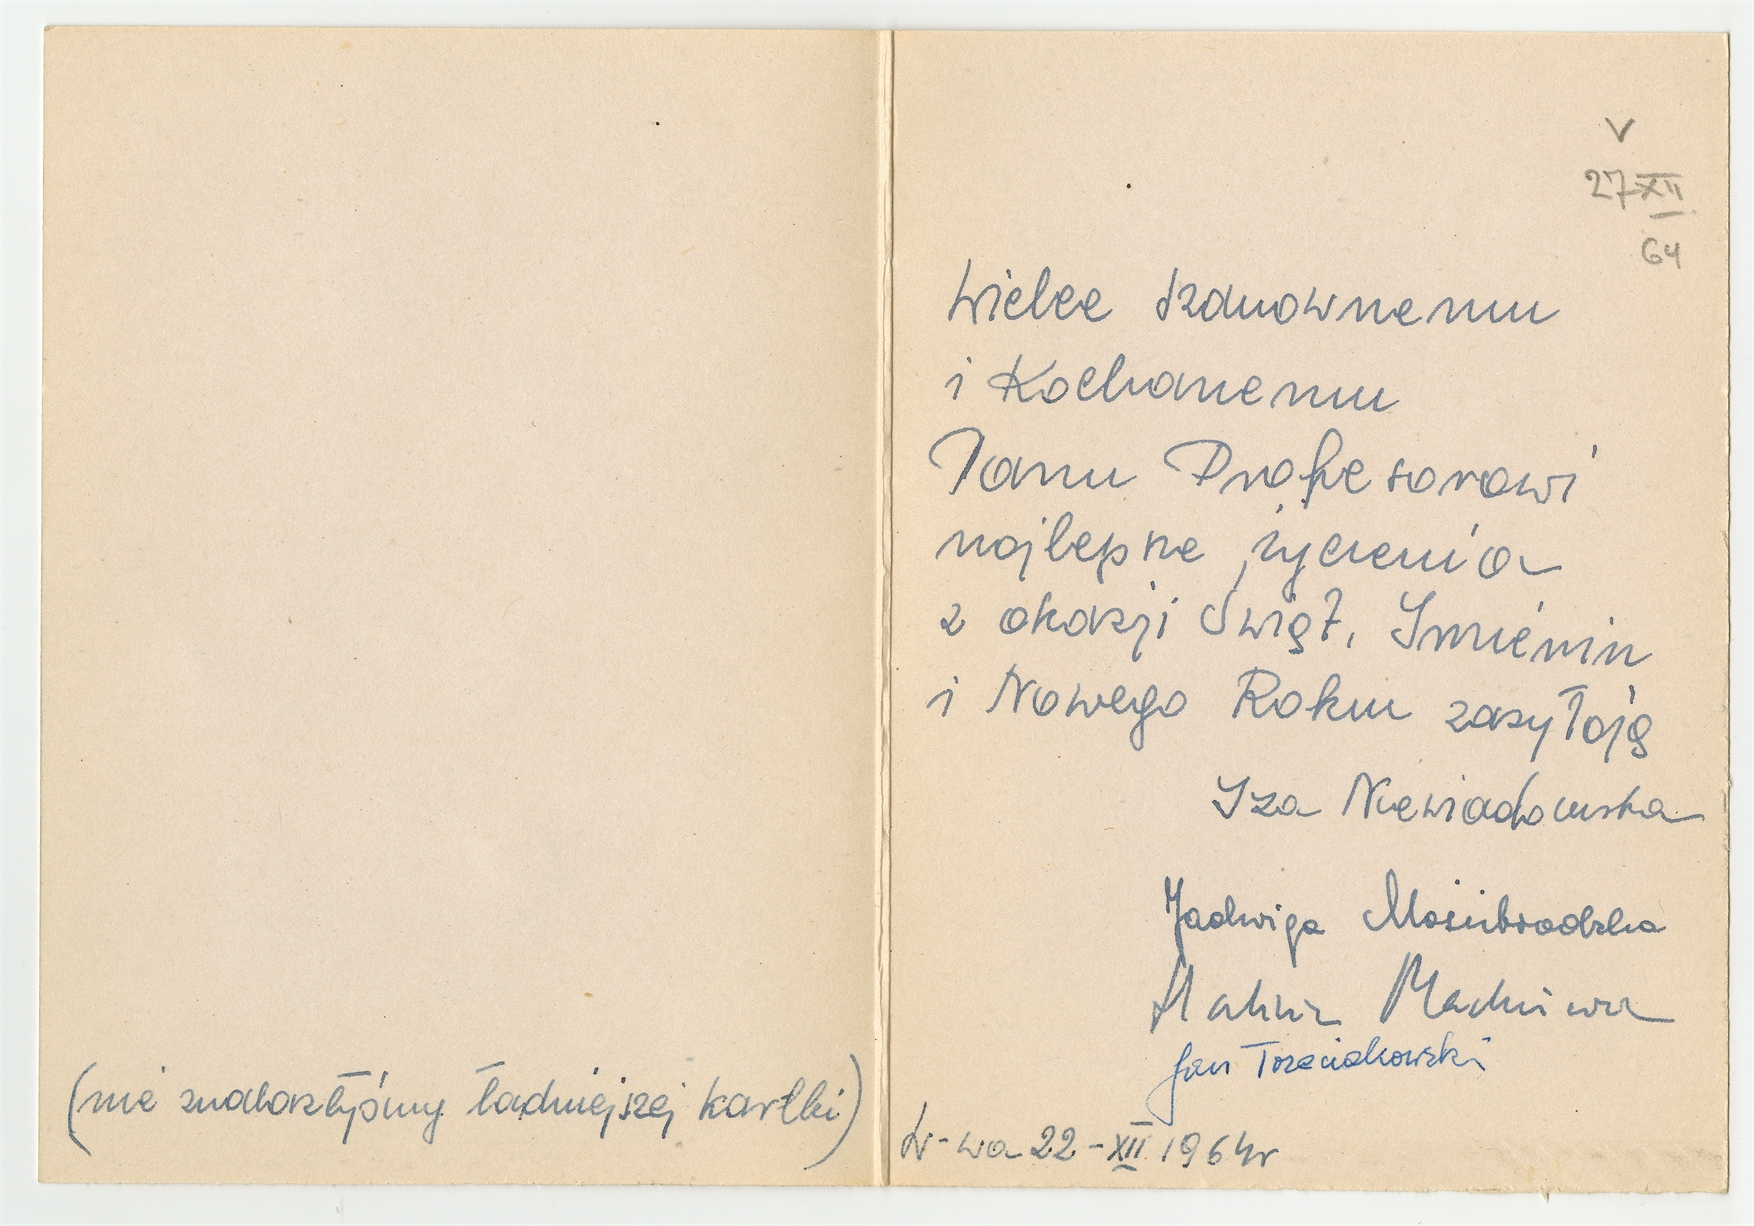 (nie znalazłyśmy ładniejszej kartki)
V
27 XII
64
Wielce Szanownemu
i Kochanemu
Panu Profesorowi
najlepsze życzenia
z okazji Świąt, Imienin
i Nowego Roku zasyłają
Iza Niewiadomska
Jadwiga Mosiubrodzka
Halina
Jan Trzeciakowski
W-wa 22-XII 1964r